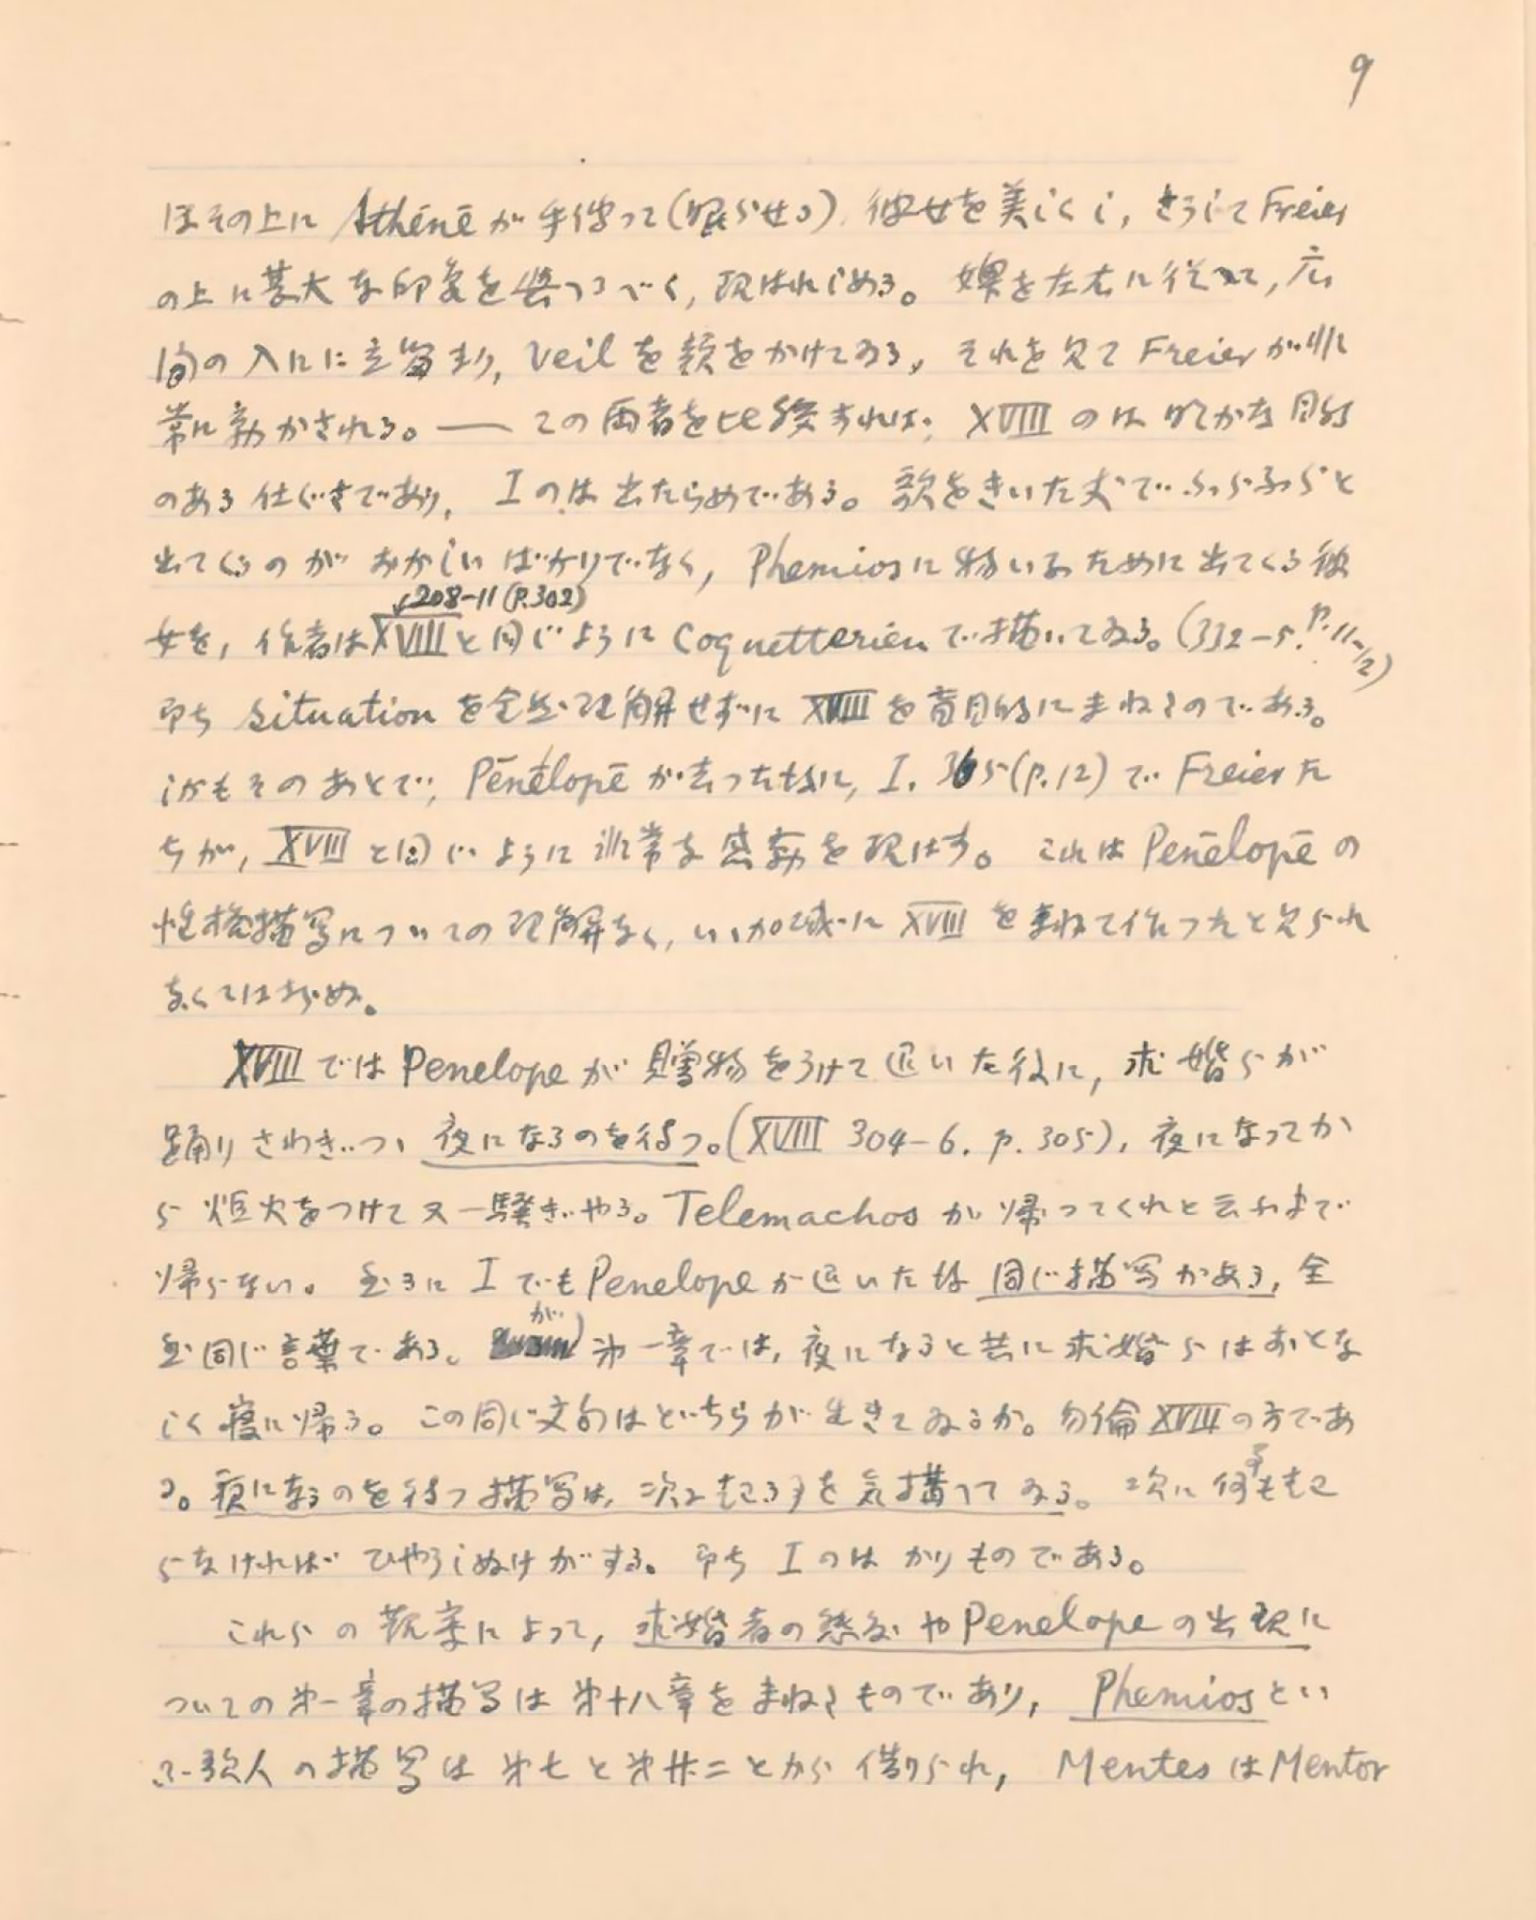 9
はその上に Athēnē が手伝って(眠らせる)彼女を美しくし, さうして Freier
の上に甚大な印象を与へるべく, 現はれしめる。婢を左右に従へて, 広
間の入口に立留まり, Veil を頬をかけてゐる, それを見て Freier が非
常に動かされる。— この両者を比較すれば, XVIII のは明かな目的
のある仕ぐさであり, I のは出たらめである。歌をきいた丈でふらふらと
出てくるのがおかしいばかりでなく, Phemios に物いふために出てくる彼
↙208-11 (P.302)
女を, 作者は XVIII と同じように Coquetterien で描いてゐる。(332-5. P. 11-12)
即ち situation を全然理解せずに XVIII を盲目的にまねたのである。
しかもそのあとで, Pēnelopē が去った時に, I. 365 (p.12) で Freier た
ちが, XVIII と同じように非常な感動を現はす。これは Penēlopē の
性格描写についての理解なく, いゝ加減に XVIII を真似て作ったと見られ
なくてはならぬ。
XVIII では Penelope が贈物をうけて退いた後に, 求婚らが
踊りさわぎつゝ 夜になるのを待つ。(XVIII 304-6. p. 305), 夜になってか
ら炬火をつけて又一騒ぎやる。Telemachos が帰ってくれと云ふまで
帰らない。然るに I でも Penelope が退いた時 同じ描写がある, 全
然同じ言葉である。が 第一章では, 夜になると共に求婚らはおとな
しく寝に帰る。この同じ文句はどちらが生きてゐるか。勿倫 XVIII の方であ
る。夜になるのを待つ描写は, 次に起る事を気構へてゐる。次に何事もおこ
らなければひやうしぬけがする。即ち I のはかりものである。
これらの観察によって, 求婚者の態度や Penelope の出現に
ついての第一章の描写は第十八章をまねたものであり, Phemios とい
ふ歌人の描写は第七と第廿二とから借りられ, Mentes は Mentor